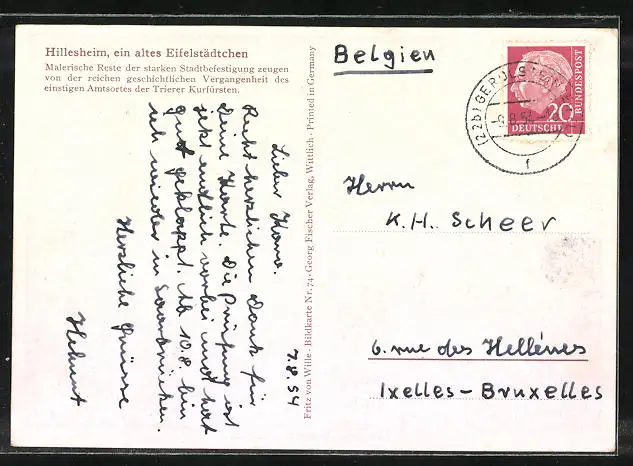 Hillesheim, ein altes Eifelstädtchen
Malerische Reste der starken Stadtbefestigung zeugen
von der reichen geschichtlichen Vergangenheit des
einstigen Amtsortes der Trierer Kurfürsten.
7.8.54
Lieber Hano.
Recht herzlichen Dank für
Deine Karte. Die Prüfung ist
jetzt endlich vorbei und hat
gut geklappt. Ab 10.8. bin
ich wieder in Saarbrücken.
Herzliche Grüsse
Helmut
Fritz von Wille · Bildkarte Nr. 74 · Georg Fischer Verlag, Wittlich · Printed in Germany
Belgien
(22b) GEROLSTEIN
f
20
DEUTSCHE
BUNDESPOST
Herrn
K.H. Scheer
6. rue des Hellènes
Ixelles-Bruxelles